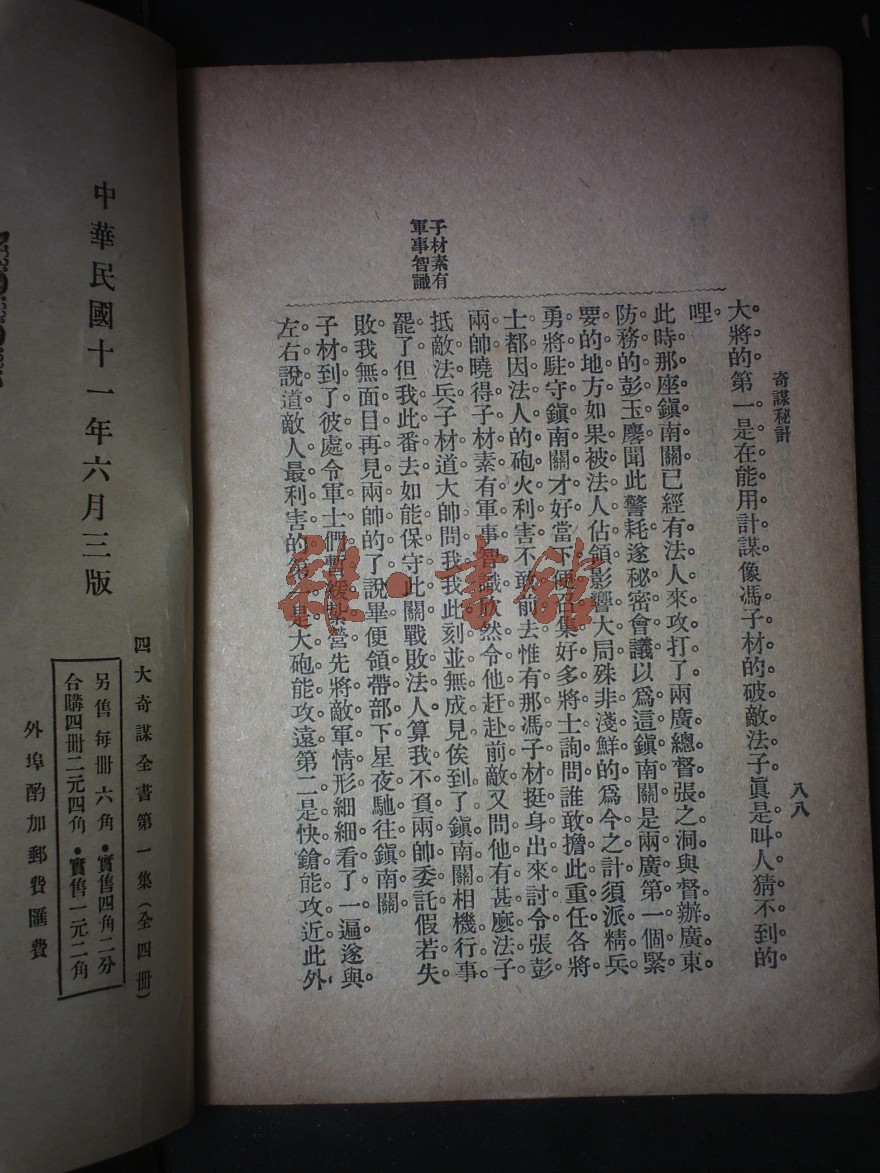 奇謀秘計
八八
大將的第一是在能用計謀。像馮子材的破敵法子眞是叫人猜不到的
哩。
此時那座鎭南關已經有法人來攻打了。兩廣總督張之洞與督辦廣東
防務的彭玉麐聞此警耗。遂秘密會議。以爲這鎭南關是兩廣第一個緊
要的地方。如果被法人佔領。影響大局。殊非淺鮮的。爲今之計。須派精兵
勇將駐守鎭南關才好。當下便召集好多將士。詢問誰敢擔此重任。各將
士都因法人的砲火利害。不敢前去。惟有那馮子材挺身出來討令。張彭
兩帥曉得子材素有軍事智識。欣然令他赶赴前敵。又問他有甚麼法子
抵敵法兵。子材道。大帥問我。我此刻並無成見。俟到了鎭南關相機行事
罷了。但我此番去。如能保守此關。戰敗法人。算我不負兩帥委託。假若失
敗。我無面目再見兩帥的了。說畢。便領帶部下。星夜馳往鎭南關。
子材到了彼處。令軍士們暫緩紮營。先將敵軍情形細細看了一遍。遂與
左右說道。敵人最利害的。第一是大砲能攻遠。第二是快鎗能攻近。此外
子材素有
軍事智識
中華民國十一年六月三版
四大奇謀全書第一集（全四冊）
另售每冊六角•實售四角二分
合購四冊二元四角•實售一元二角
外埠酌加郵費匯費
雜•書館